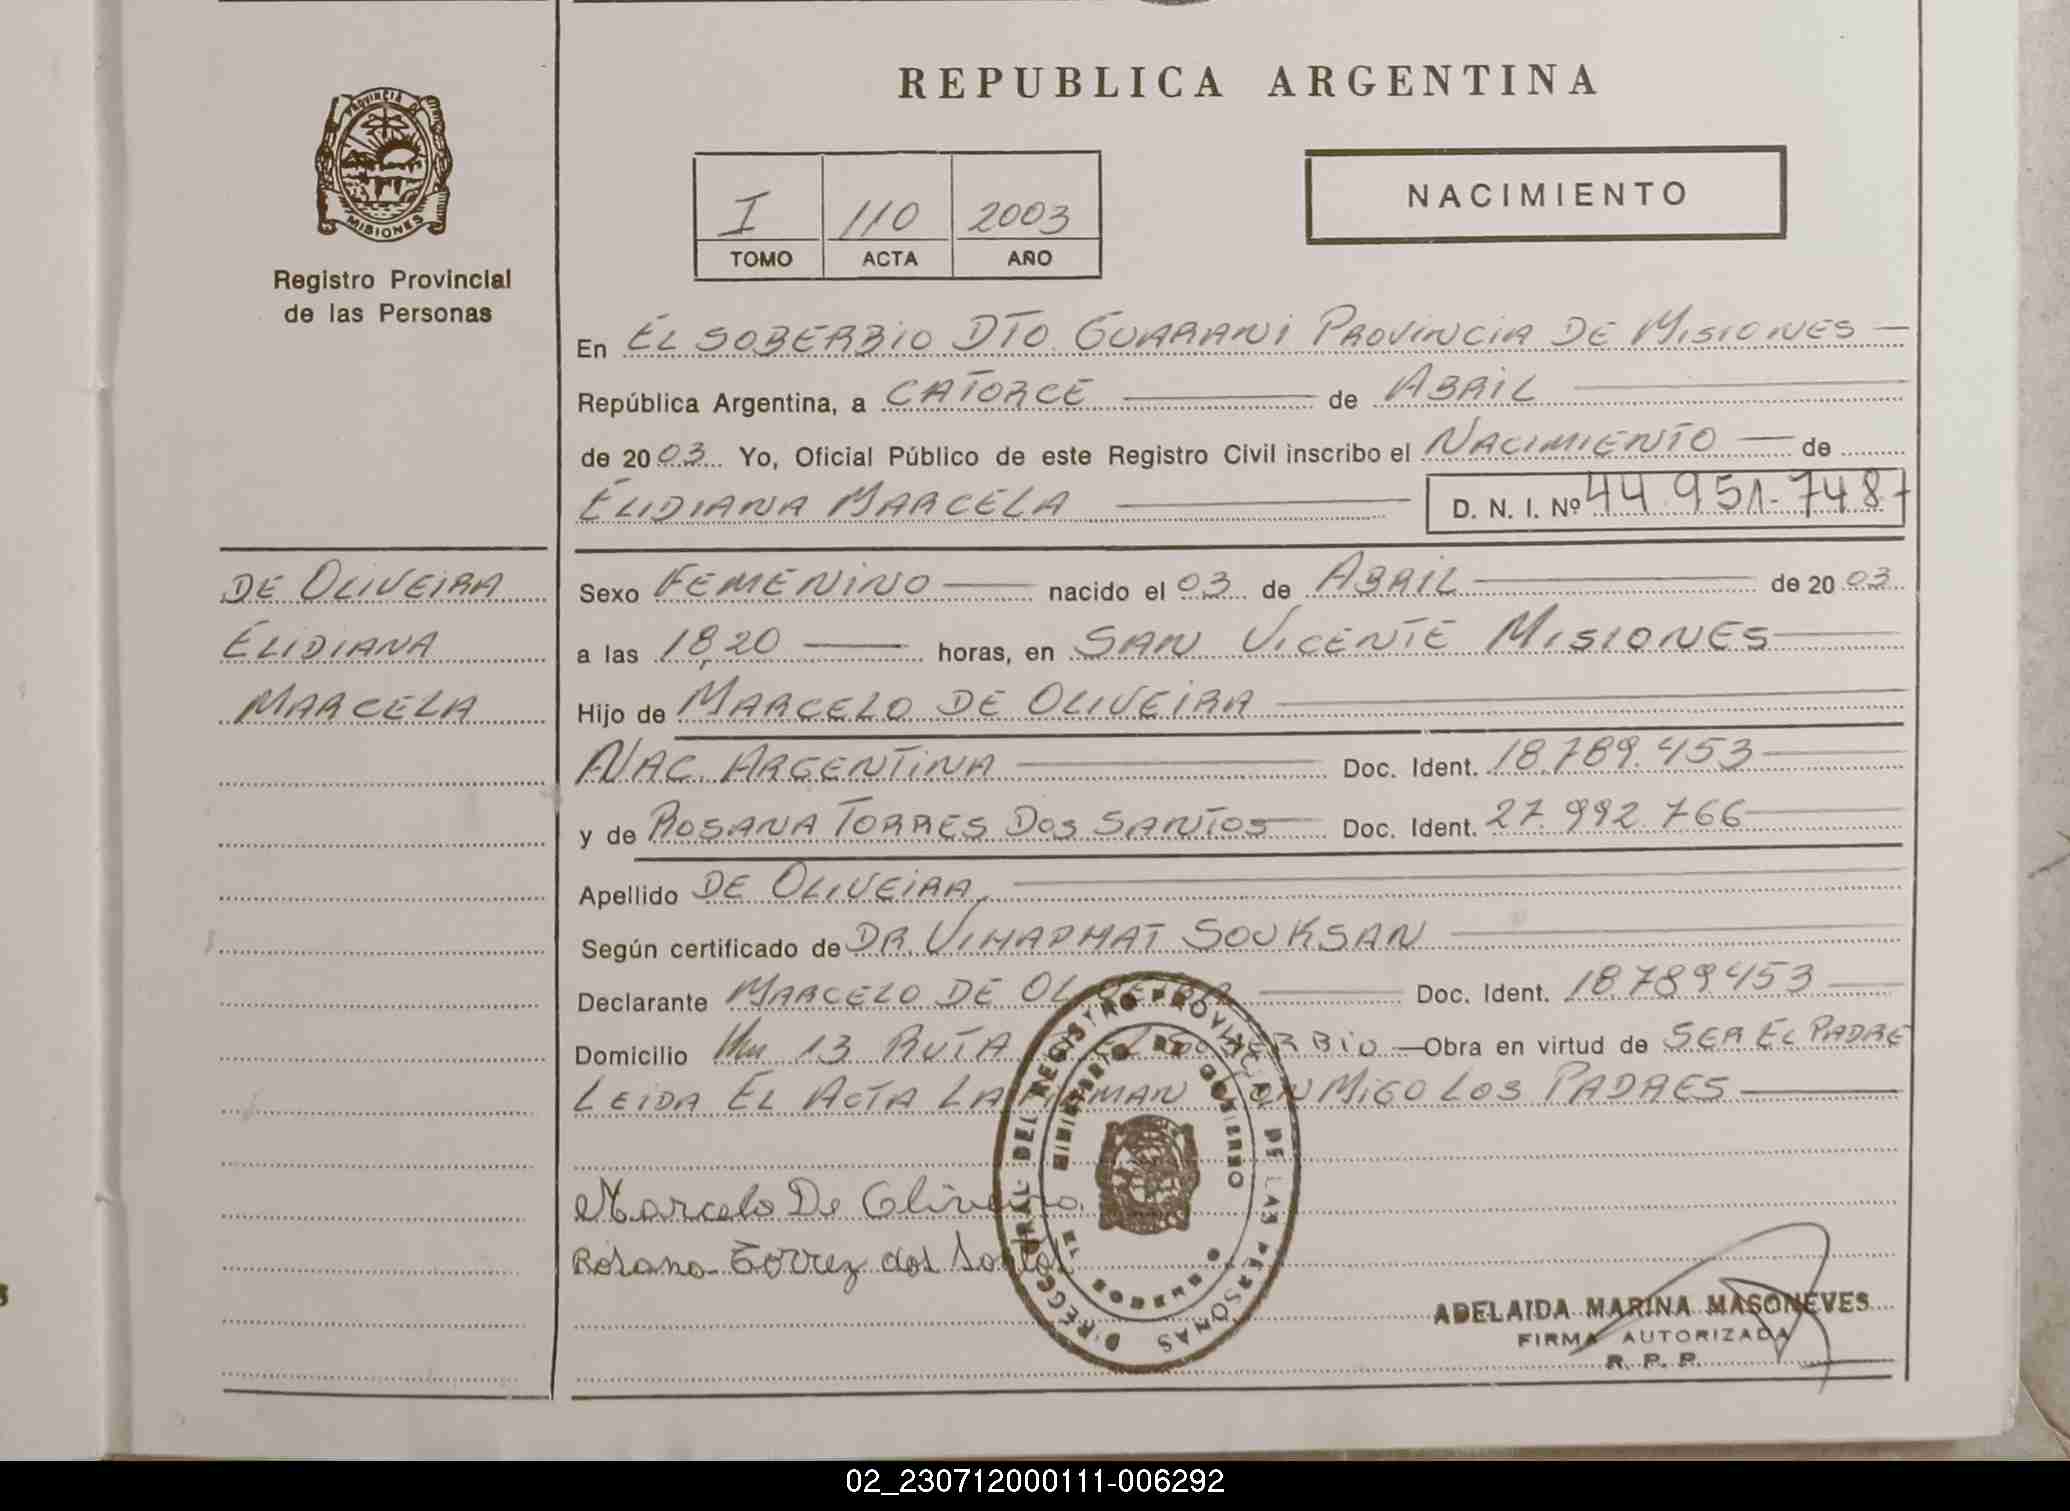 REPUBLICA ARGENTINA
PROVINCIA DE MISIONES
Registro Provincial
de las Personas
I 110 2003
TOMO ACTA AÑO
NACIMIENTO
En EL SOBERBIO DTO GUARANI PROVINCIA DE MISIONES
República Argentina, a CATORCE de ABRIL
de 2003 Yo, Oficial Público de este Registro Civil inscribo el NACIMIENTO de
ELIDIANA MARCELA D. N. I. Nº 44.951.748
DE OLIVEIRA
ELIDIANA
MARCELA
Sexo FEMENINO nacido el 03 de ABRIL de 2003
a las 18,20 horas, en SAN VICENTE MISIONES
Hijo de MARCELO DE OLIVEIRA
NAC. ARGENTINA Doc. Ident. 18.789.453
y de ROSANA TORRES DOS SANTOS Doc. Ident. 27.992.766
Apellido DE OLIVEIRA
Según certificado de DR. VIHAPHAT SOUKSAN
Declarante MARCELO DE OLIVEIRA Doc. Ident. 18.789453
Domicilio Km 13 RUTA EL SOBERBIO Obra en virtud de SER EL PADRE
LEIDA EL ACTA LA FIRMAN CONMIGO LOS PADRES
Marcelo De Oliveira
Rosana Torrez dos Santos
DIRECC. GRAL. DEL REGISTRO PROVINCIAL DE LAS PERSONAS
MINISTERIO DE GOBIERNO
ADELAIDA MARINA MASONEVES
FIRMA AUTORIZADA
R. P. P.
02_230712000111-006292